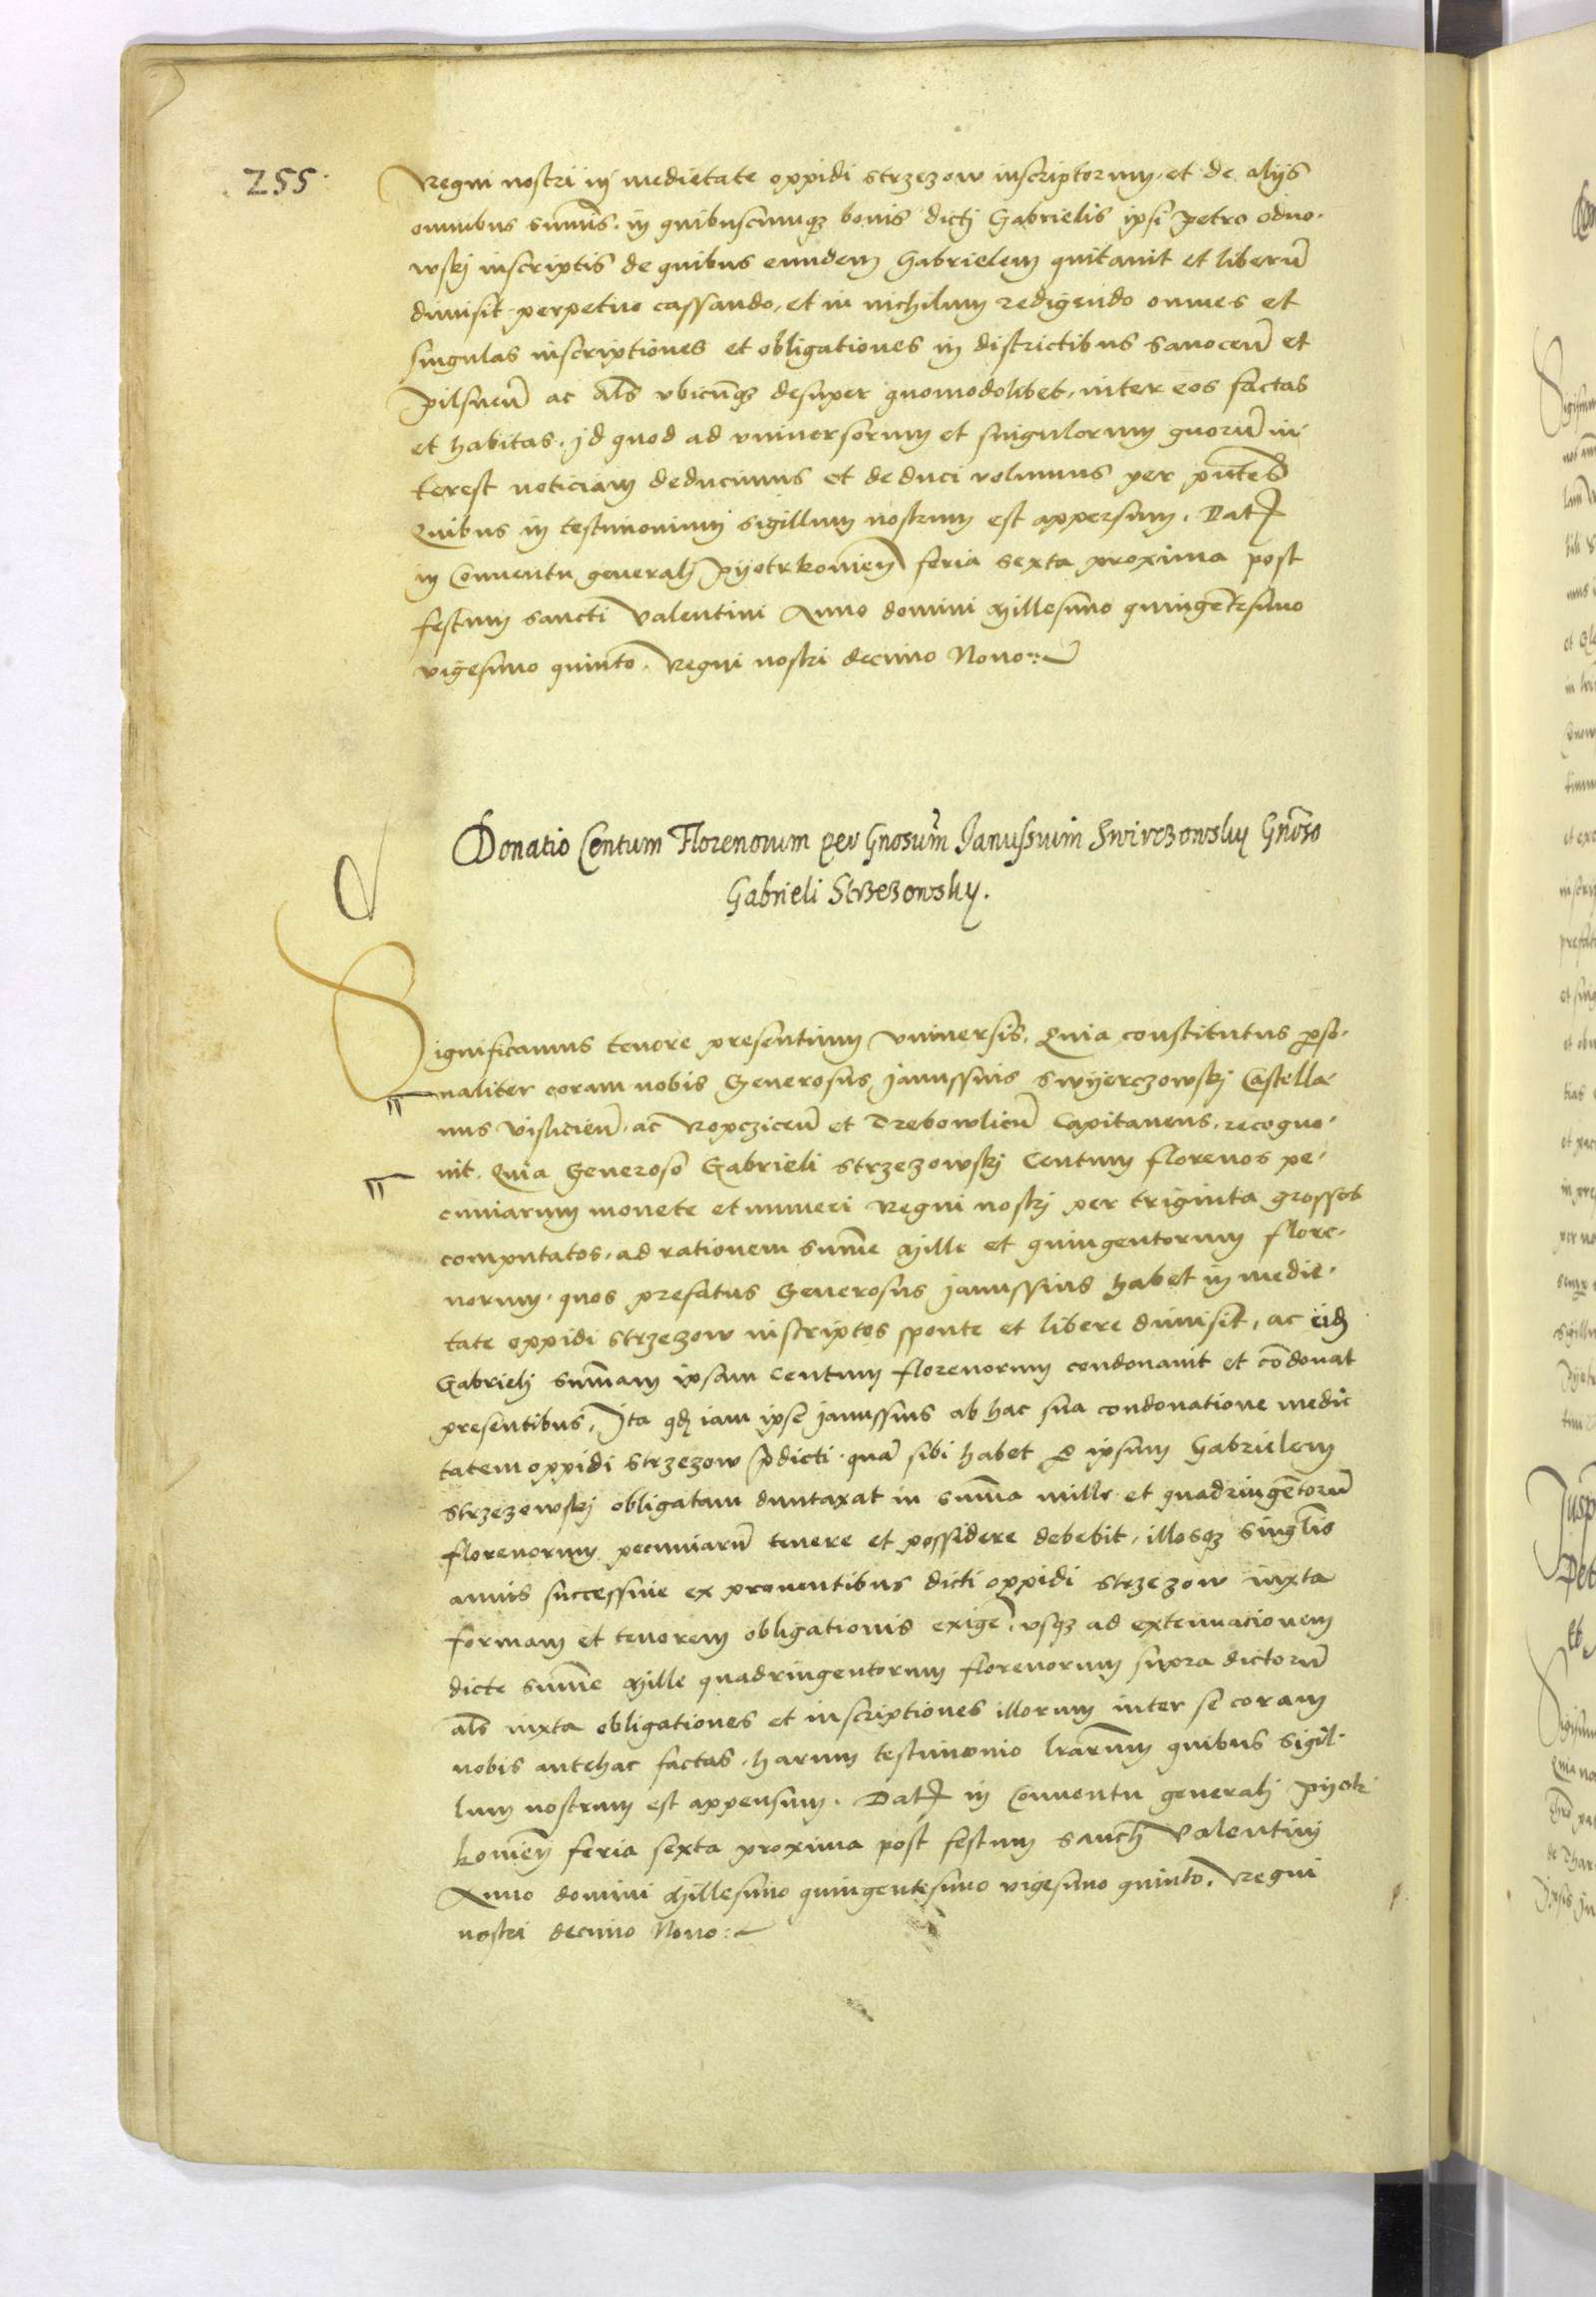 255
Regni nostri in medietate oppidi Strzezow inscriptorum, et de alys
omnibus sum̄is. in quibuscumqȝ bonis dictj Gabrielis ipsi Petro odno-
wskj inscriptis de quibus eundem Gabrielem quitauit et liberū
dimisit perpetue cassando, et in nichilum redigendo omnes et
singulas inscriptiones et obligationes in districtibus Sanoceñ et
pilsneñ ac als vbicūqȝ desuper quomodolibet, inter eos factas
et habitas. jd quod ad vniuersorum et singulorum quorū in-
terest noticiam deducimus et deduci volumus per pn̄tes
Quibus in testimonium sigillum nostrum est appensum. Dat
in Conuentu generalj Pyotrkouien̄ feria sexta proxima post
festum sancti Valentini Anno domini Millesimo quingētesimo
vigesimo quinto. Regni nostri decimo Nono:
Donatio Centum Florenorum per Gnosum̄ Janussium Swirczowsky Gn̄oso
Gabrieli Strzezowsky.
Significamus tenore presentium vniuersis. Quia constitutus perso-
naliter coram nobis Generosus janussius Swyerczowskj Castella-
nus vislicieñ. ac Ropcziceñ et Trebowlieñ Capitaneus. recogno-
uit. Quia Generoso Gabrieli Strzezowskj Centum florenos pe-
cuniarum monete et numeri Regni nostrj per triginta grossos
computatos. ad rationem sum̄e Mille et quingentorum flore-
norum. quos prefatus Generosus janussius habet in medie-
tate oppidi Strzezow inscriptos sponte et libere dimisit, ac eidȝ
Gabrielj summam ipsam Centum florenorum condonauit et cōdonat
presentibus. Ita qdȝ iam ipse janussius ab hac sua condonatione medie
tatem oppidi Strzezow p̄dicti. quā sibi habet p ipsum Gabrielem
Strzezowskj obligatam duntaxat in sum̄a mille et quadringētorū
florenorum pecuniarū tenere et possidere debebit, illosqȝ singlis
annis successiue ex prouentibus dicti oppidi Strzezow iuxta
formam et tenorem obligationis exige. vsqȝ ad extenuacionem
dicte sum̄e Mille quadringentorum florenorum supra dictorū
als iuxta obligationes et inscriptiones illorum inter se coram
nobis antehac factas. harum testimonio lrarum̄ quibus sigil-
lum nostrum est appensum. Dat in Conuentu generalj Pyotr
kouien̄ feria sexta proxima post festum sancti Valentinj
Anno domini Millesimo quingentesimo vigesimo quinto. Regni
nostri decimo Nono: